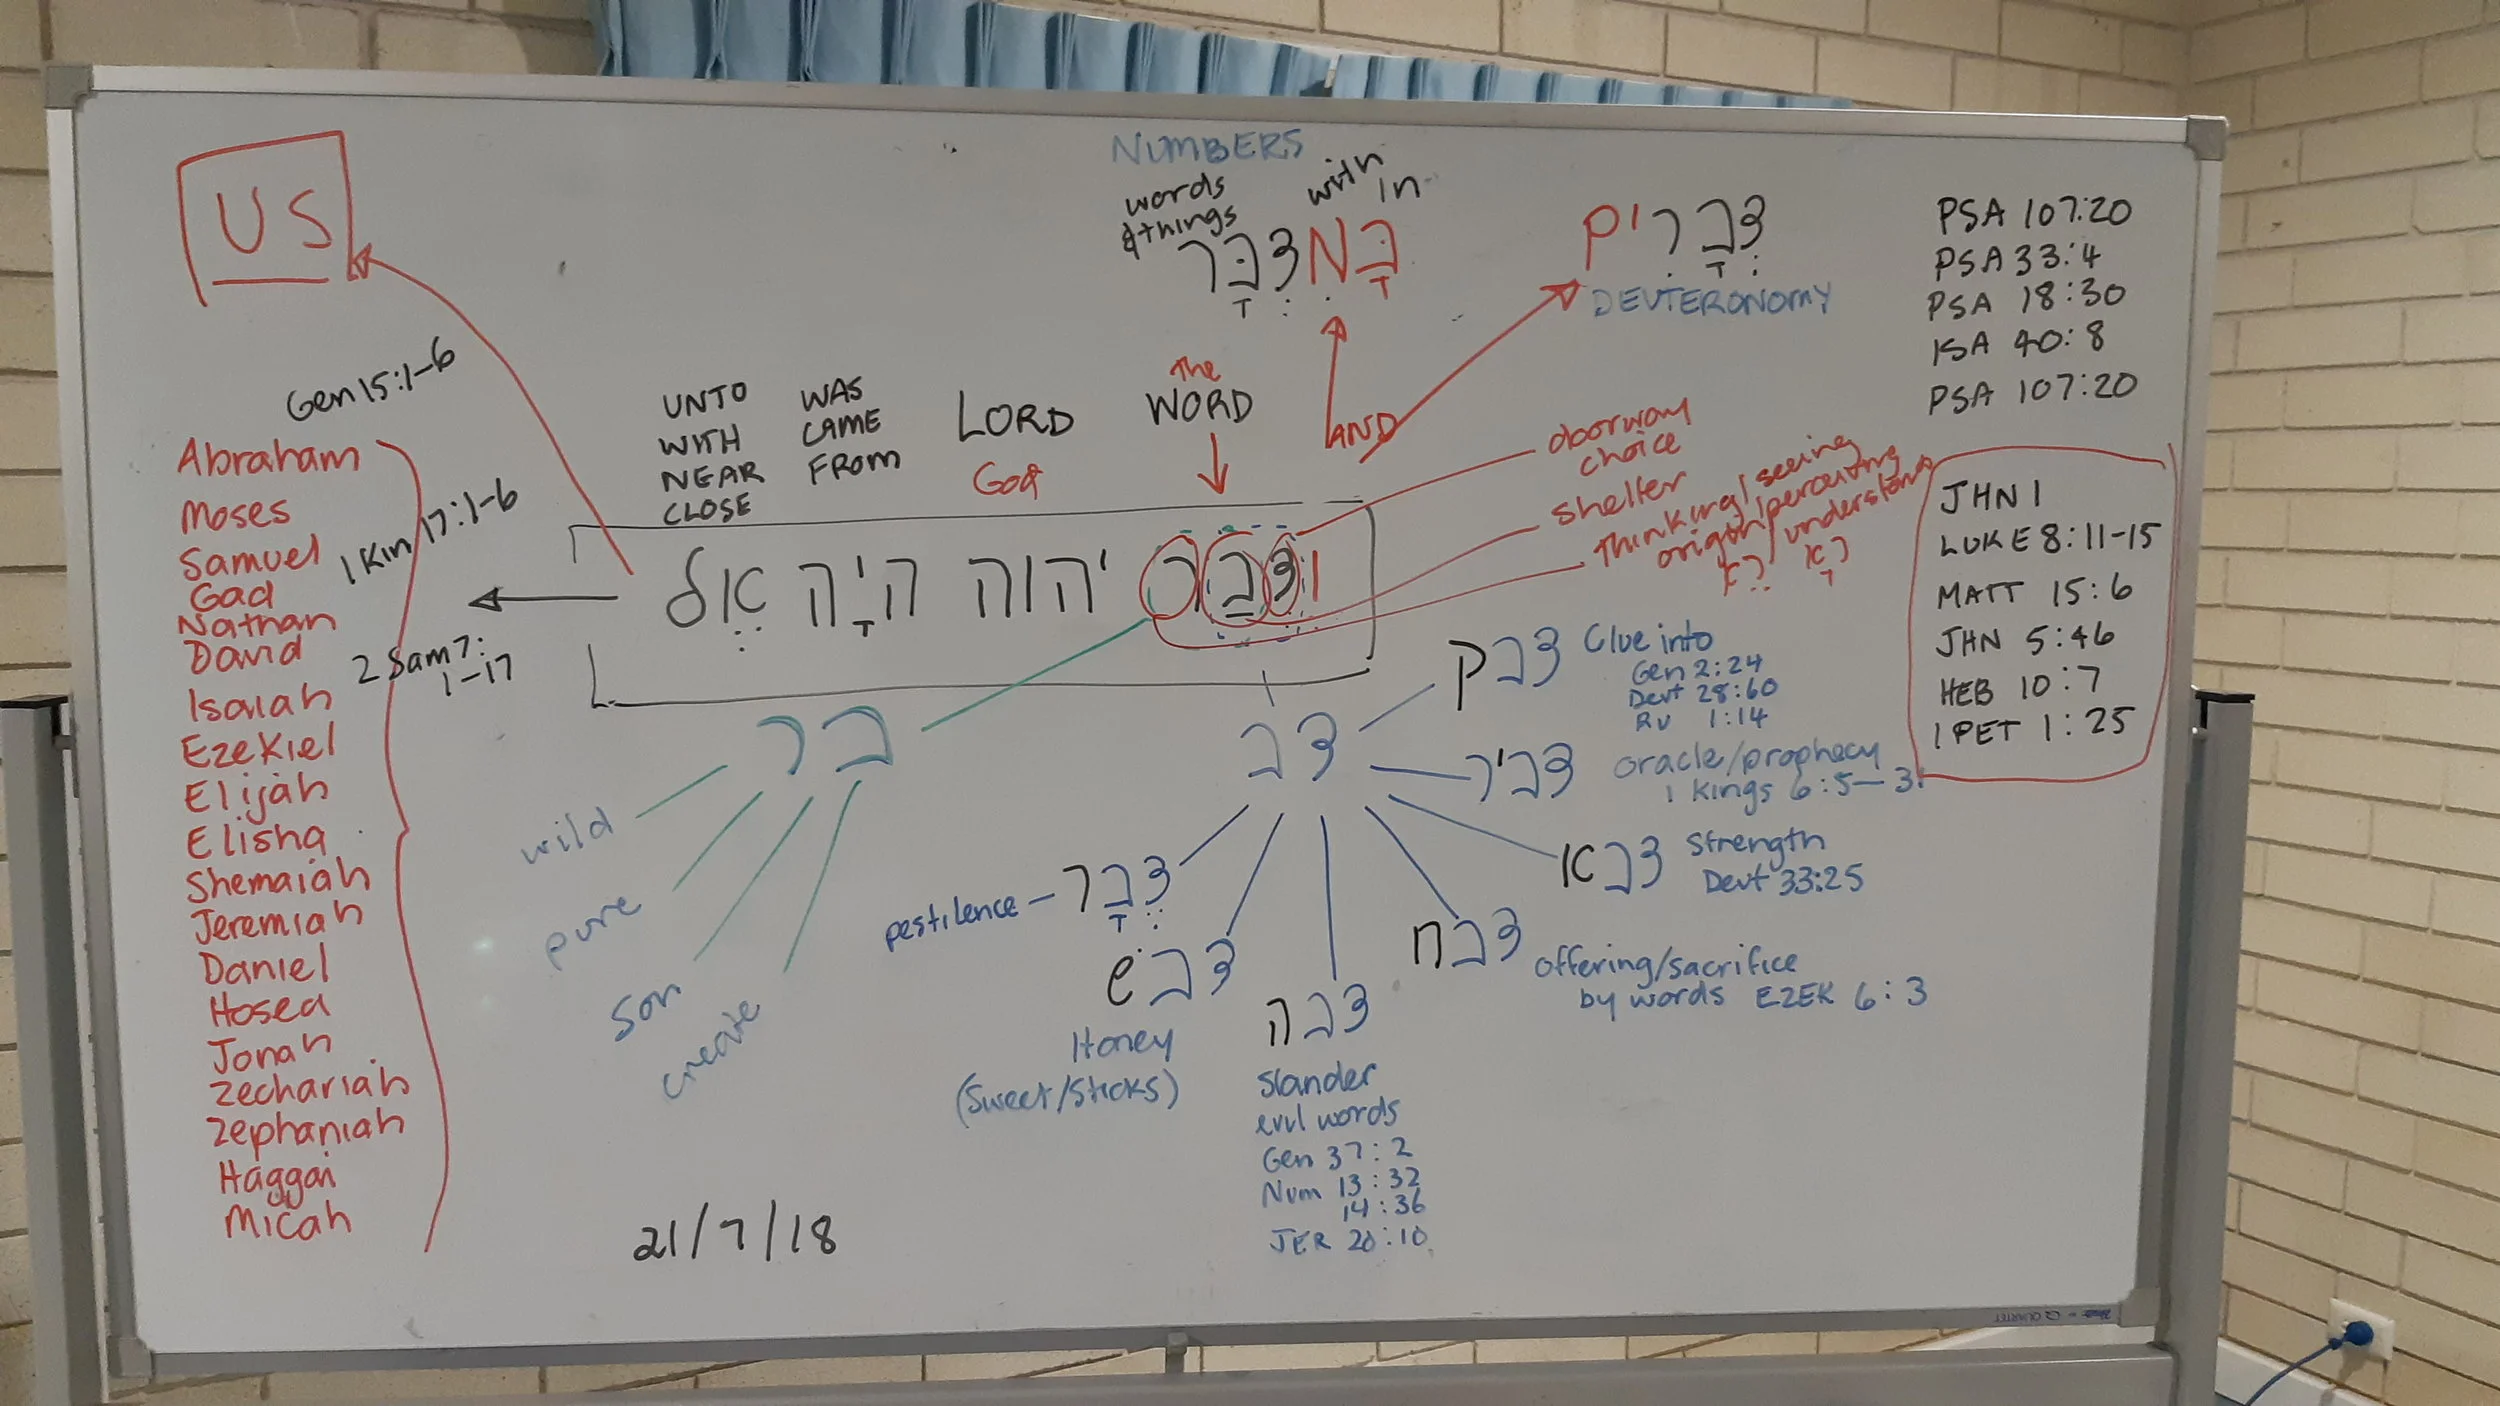 US
NUMBERS
words
& things
with
in
במדבר
דברים
DEUTERONOMY
PSA 107:20
PSA 33:4
PSA 18:30
ISA 40:8
PSA 107:20
JHN 1
LUKE 8:11-15
MATT 15:6
JHN 5:46
HEB 10:7
1 PET 1:25
Gen 15:1-6
1 Kin 17:1-6
2 Sam 7:
1-17
Abraham
Moses
Samuel
Gad
Nathan
David
Isaiah
Ezekiel
Elijah
Elisha
Shemaiah
Jeremiah
Daniel
Hosea
Jonah
Zechariah
Zephaniah
Haggai
Micah
UNTO
WITH
NEAR
CLOSE
WAS
CAME
FROM
LORD
God
The
WORD
AND
doorway
choice
shelter
thinking/seeing
origin/perceiving
/understand
ודבר יהוה היה אל
בר
wild
pure
son
create
דב
דבק Clue into
Gen 2:24
Deut 28:60
RU 1:14
דביר oracle/prophecy
1 Kings 6:5-3
דבא Strength
Deut 33:25
דבח offering/sacrifice
by words EZEK 6:3
דבה
Slander
evil words
Gen 37:2
Num 13:32
14:36
JER 20:10
דבש
Honey
(Sweet/Sticks)
pestilence - דבר
21/7/18
QUARTET